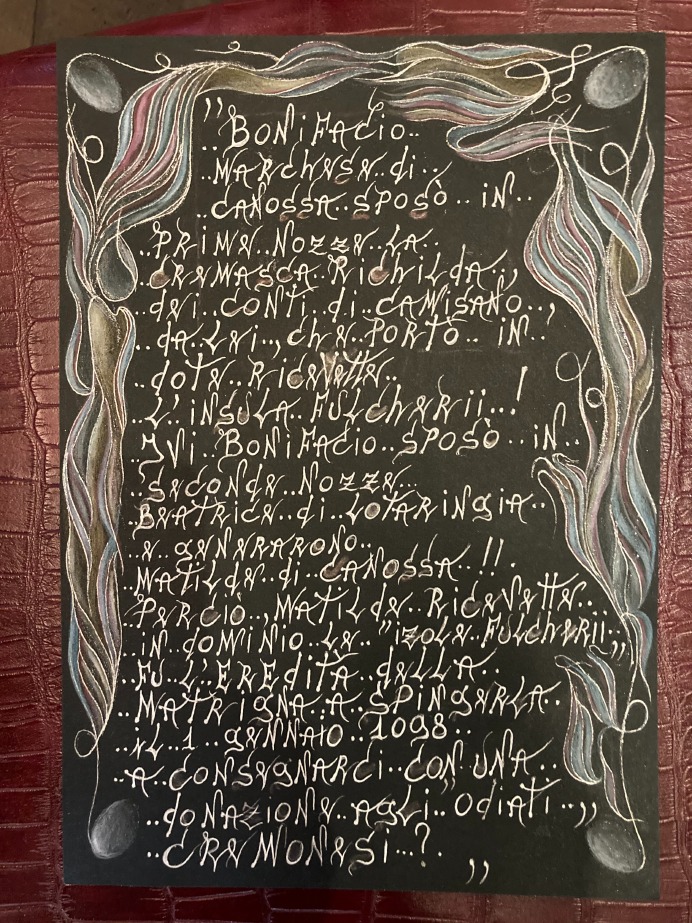 "BONiFACiO..
..MARChESE..di..
..CANOSSA..SPOSÒ..iN..
..PRiME..NOZZE..LA..
..CREMASCA..RiChiLDA..,
..dEi..CONTi..di..CAMiSANO..,
..dA.LEi..,ChE..PORTÒ..iN..
..dOTE..RiCEVETTE..
..L'iNSULA..FULChERii...!
IVI..BONiFACiO..SPOSÒ..iN..
..SECONdE..NOZZE...
..BEATRiCE..di..LOTARiNGiA..
..E..GENERARONO..
MATiLdE..di..CANOSSA..!!.
PERCiÒ..,MATiLdE..RiCEVETTE...
..iN..dOMiNiO..LE.."iZOLE.FULChERii,,
..FU..L'EREdiTÀ..dELLA..
..MATRiGNA..A..SPiNGERLA..
..iL..1..GENNAIO..1098..
..A..CONSEGNARCi..CON..UNA..
..dONAZiONE..AGLi.."OdiATi..,,
..CREMONESi...?.
,,